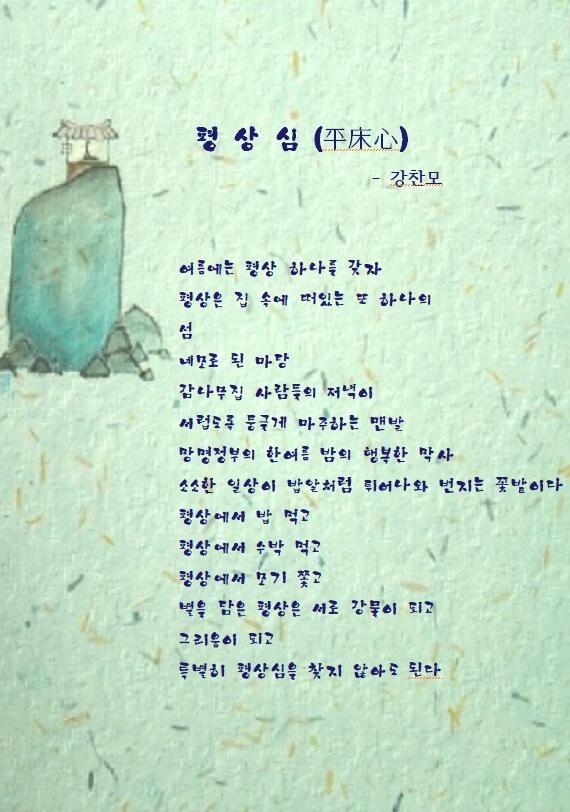 평 상 심 (平床心)
- 강찬모
여름에는 평상 하나를 갖자
평상은 집 속에 떠있는 또 하나의
섬
네모로 된 마당
감나무집 사람들의 저녁이
서럽도록 둥글게 마주하는 맨발
망명정부의 한여름 밤의 행복한 막사
소소한 일상이 밥알처럼 튀어나와 번지는 꽃밭이다
평상에서 밥 먹고
평상에서 수박 먹고
평상에서 모기 쫓고
별을 담은 평상은 서로 강물이 되고
그리움이 되고
특별히 평상심을 찾지 않아도 된다